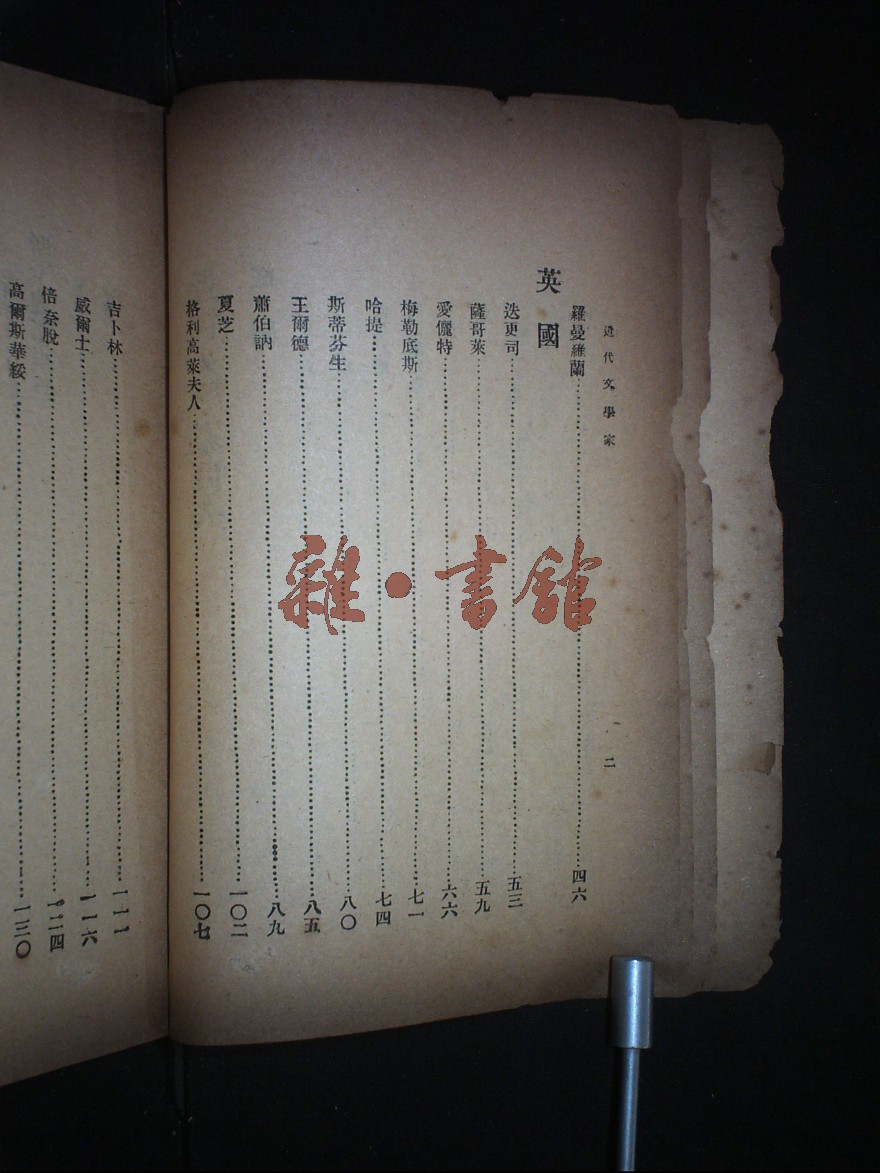 近代文學家
二
羅曼羅蘭 四六
英國
迭更司 五三
薩哥萊 五九
愛儷特 六六
梅勒底斯 七一
哈提 七四
斯蒂芬生 八〇
王爾德 八五
蕭伯訥 八九
夏芝 一〇二
格利高萊夫人 一〇七
吉卜林 一一一
威爾士 一一六
倍奈脫 一二四
高爾斯華綏 一三〇
雜·書館